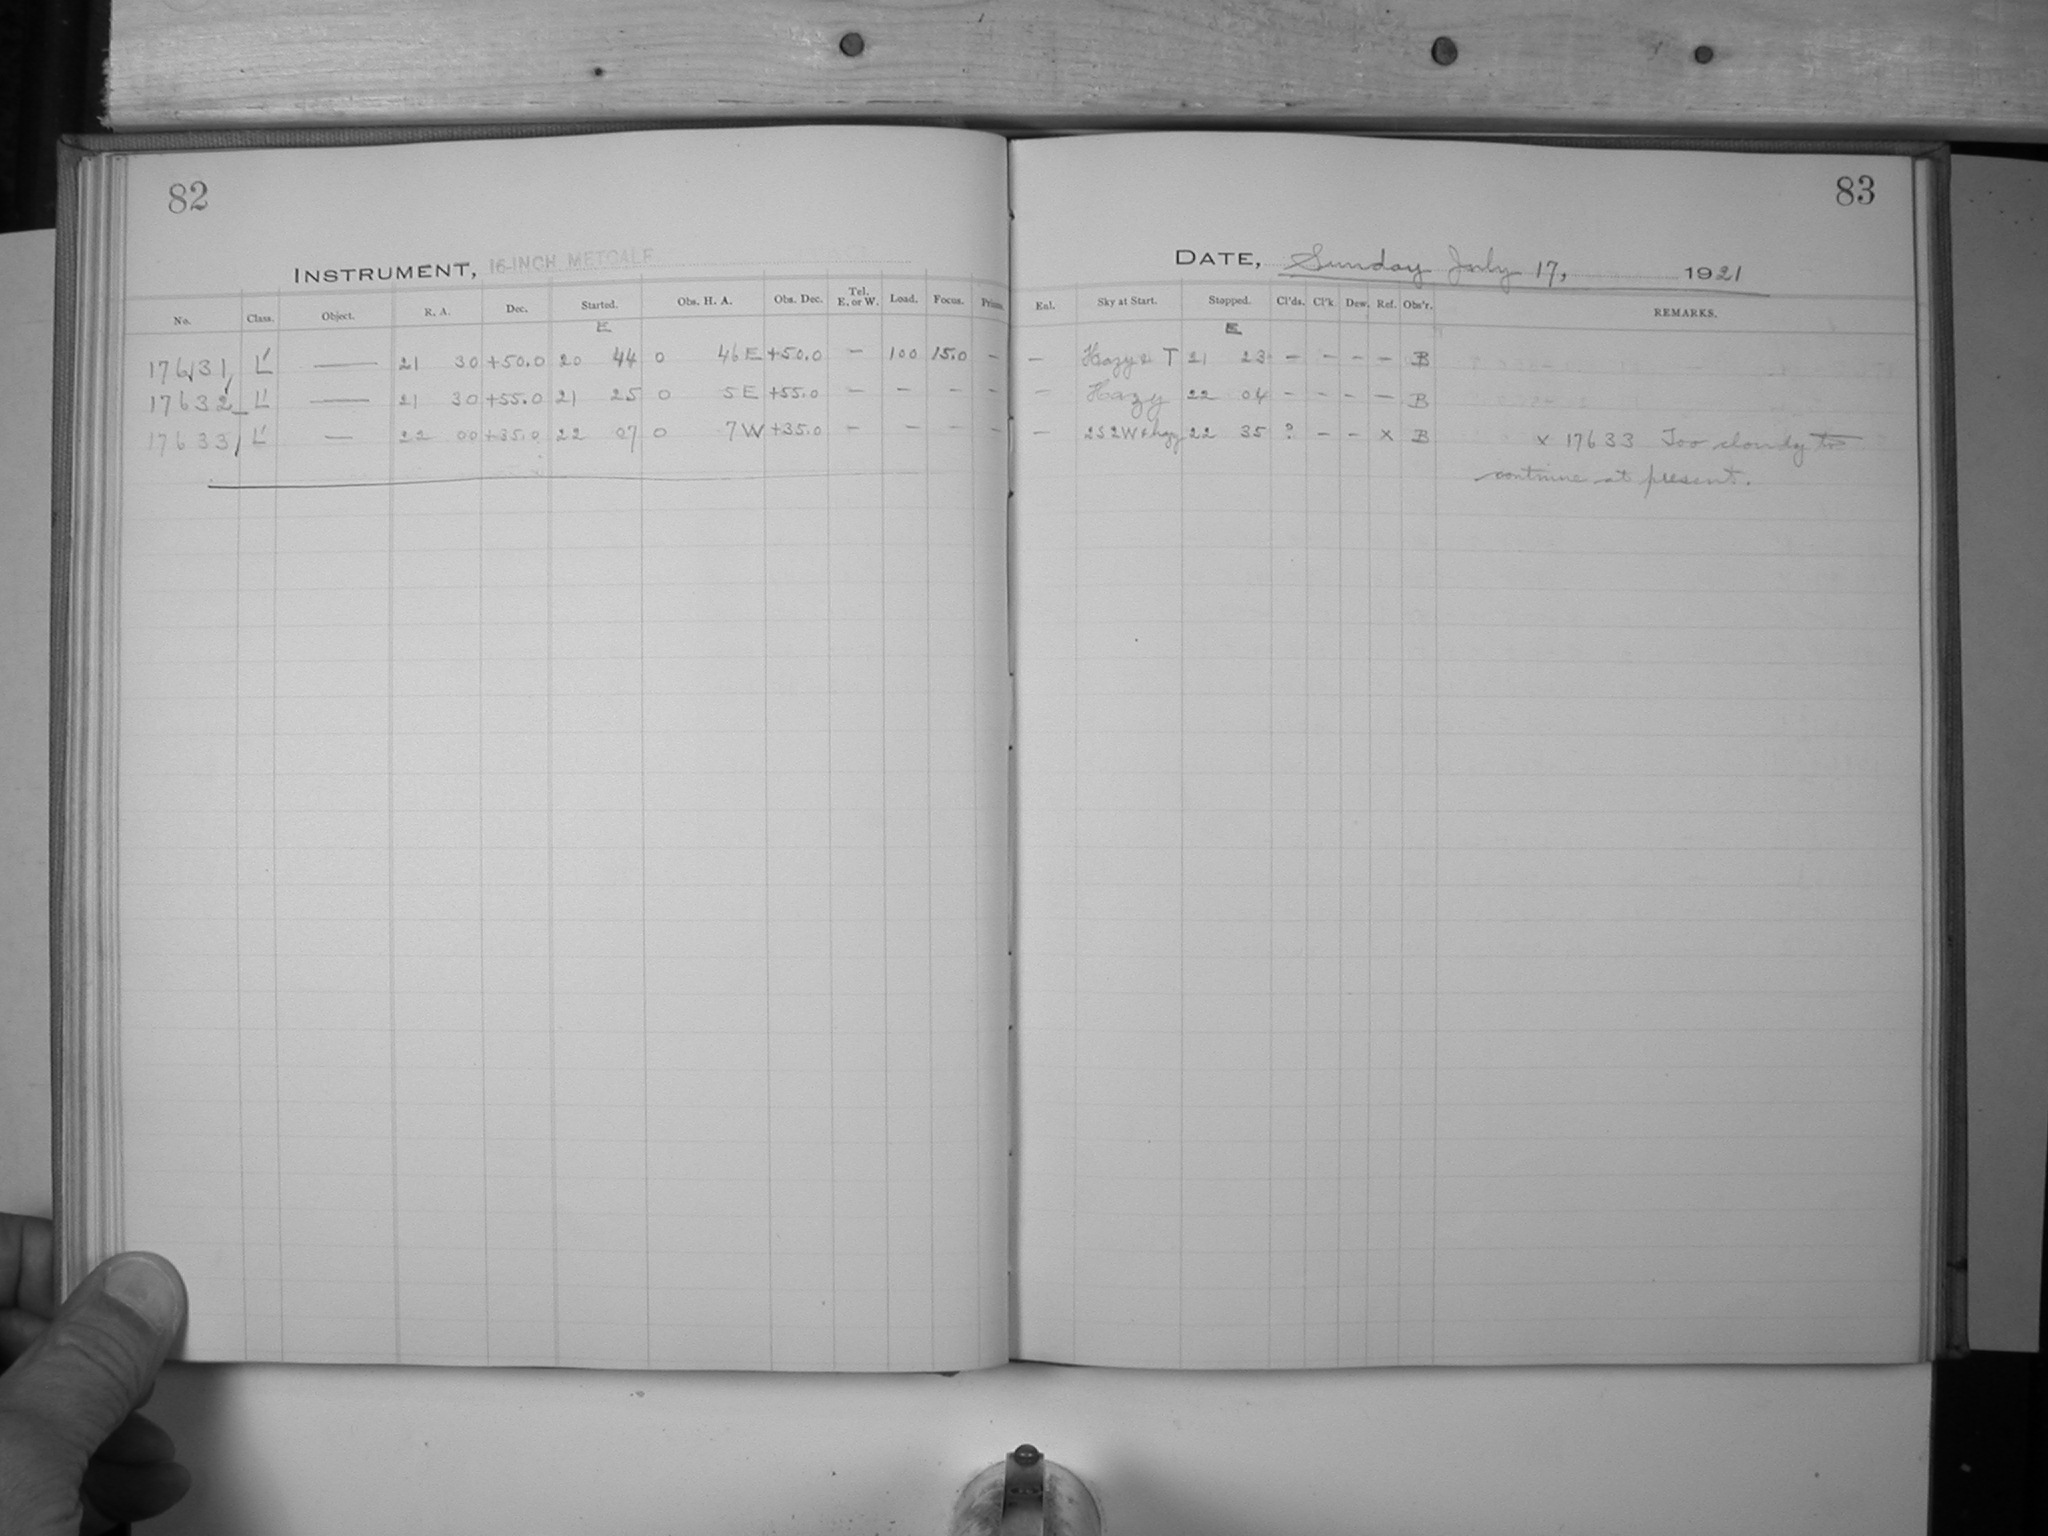 82
INSTRUMENT, 16-INCH METCALF
No. Class. Object. R. A. Dec. Started. Obs. H. A. Obs. Dec. Tel. E. or W. Load. Focus. Prism.
E
17631 L' — 21 30 +50.0 20 44 0 46 E +50.0 – 100 15.0 –
17632 L' — 21 30 +55.0 21 25 0 5 E +55.0 – – – –
17633 L' — 22 00 +35.0 22 07 0 7 W +35.0 – – – –
83
DATE, Sunday July 17, 1921
Exl. Sky at Start. Stopped. Cl'ds. Cl'k. Dew. Ref. Obs'r. REMARKS.
E
– Hazy & T 21 23 – – – – B
– Hazy 22 04 – – – – B
– 2S 2W & hazy 22 35 ? – – x B x 17633 Too cloudy to
continue at present.